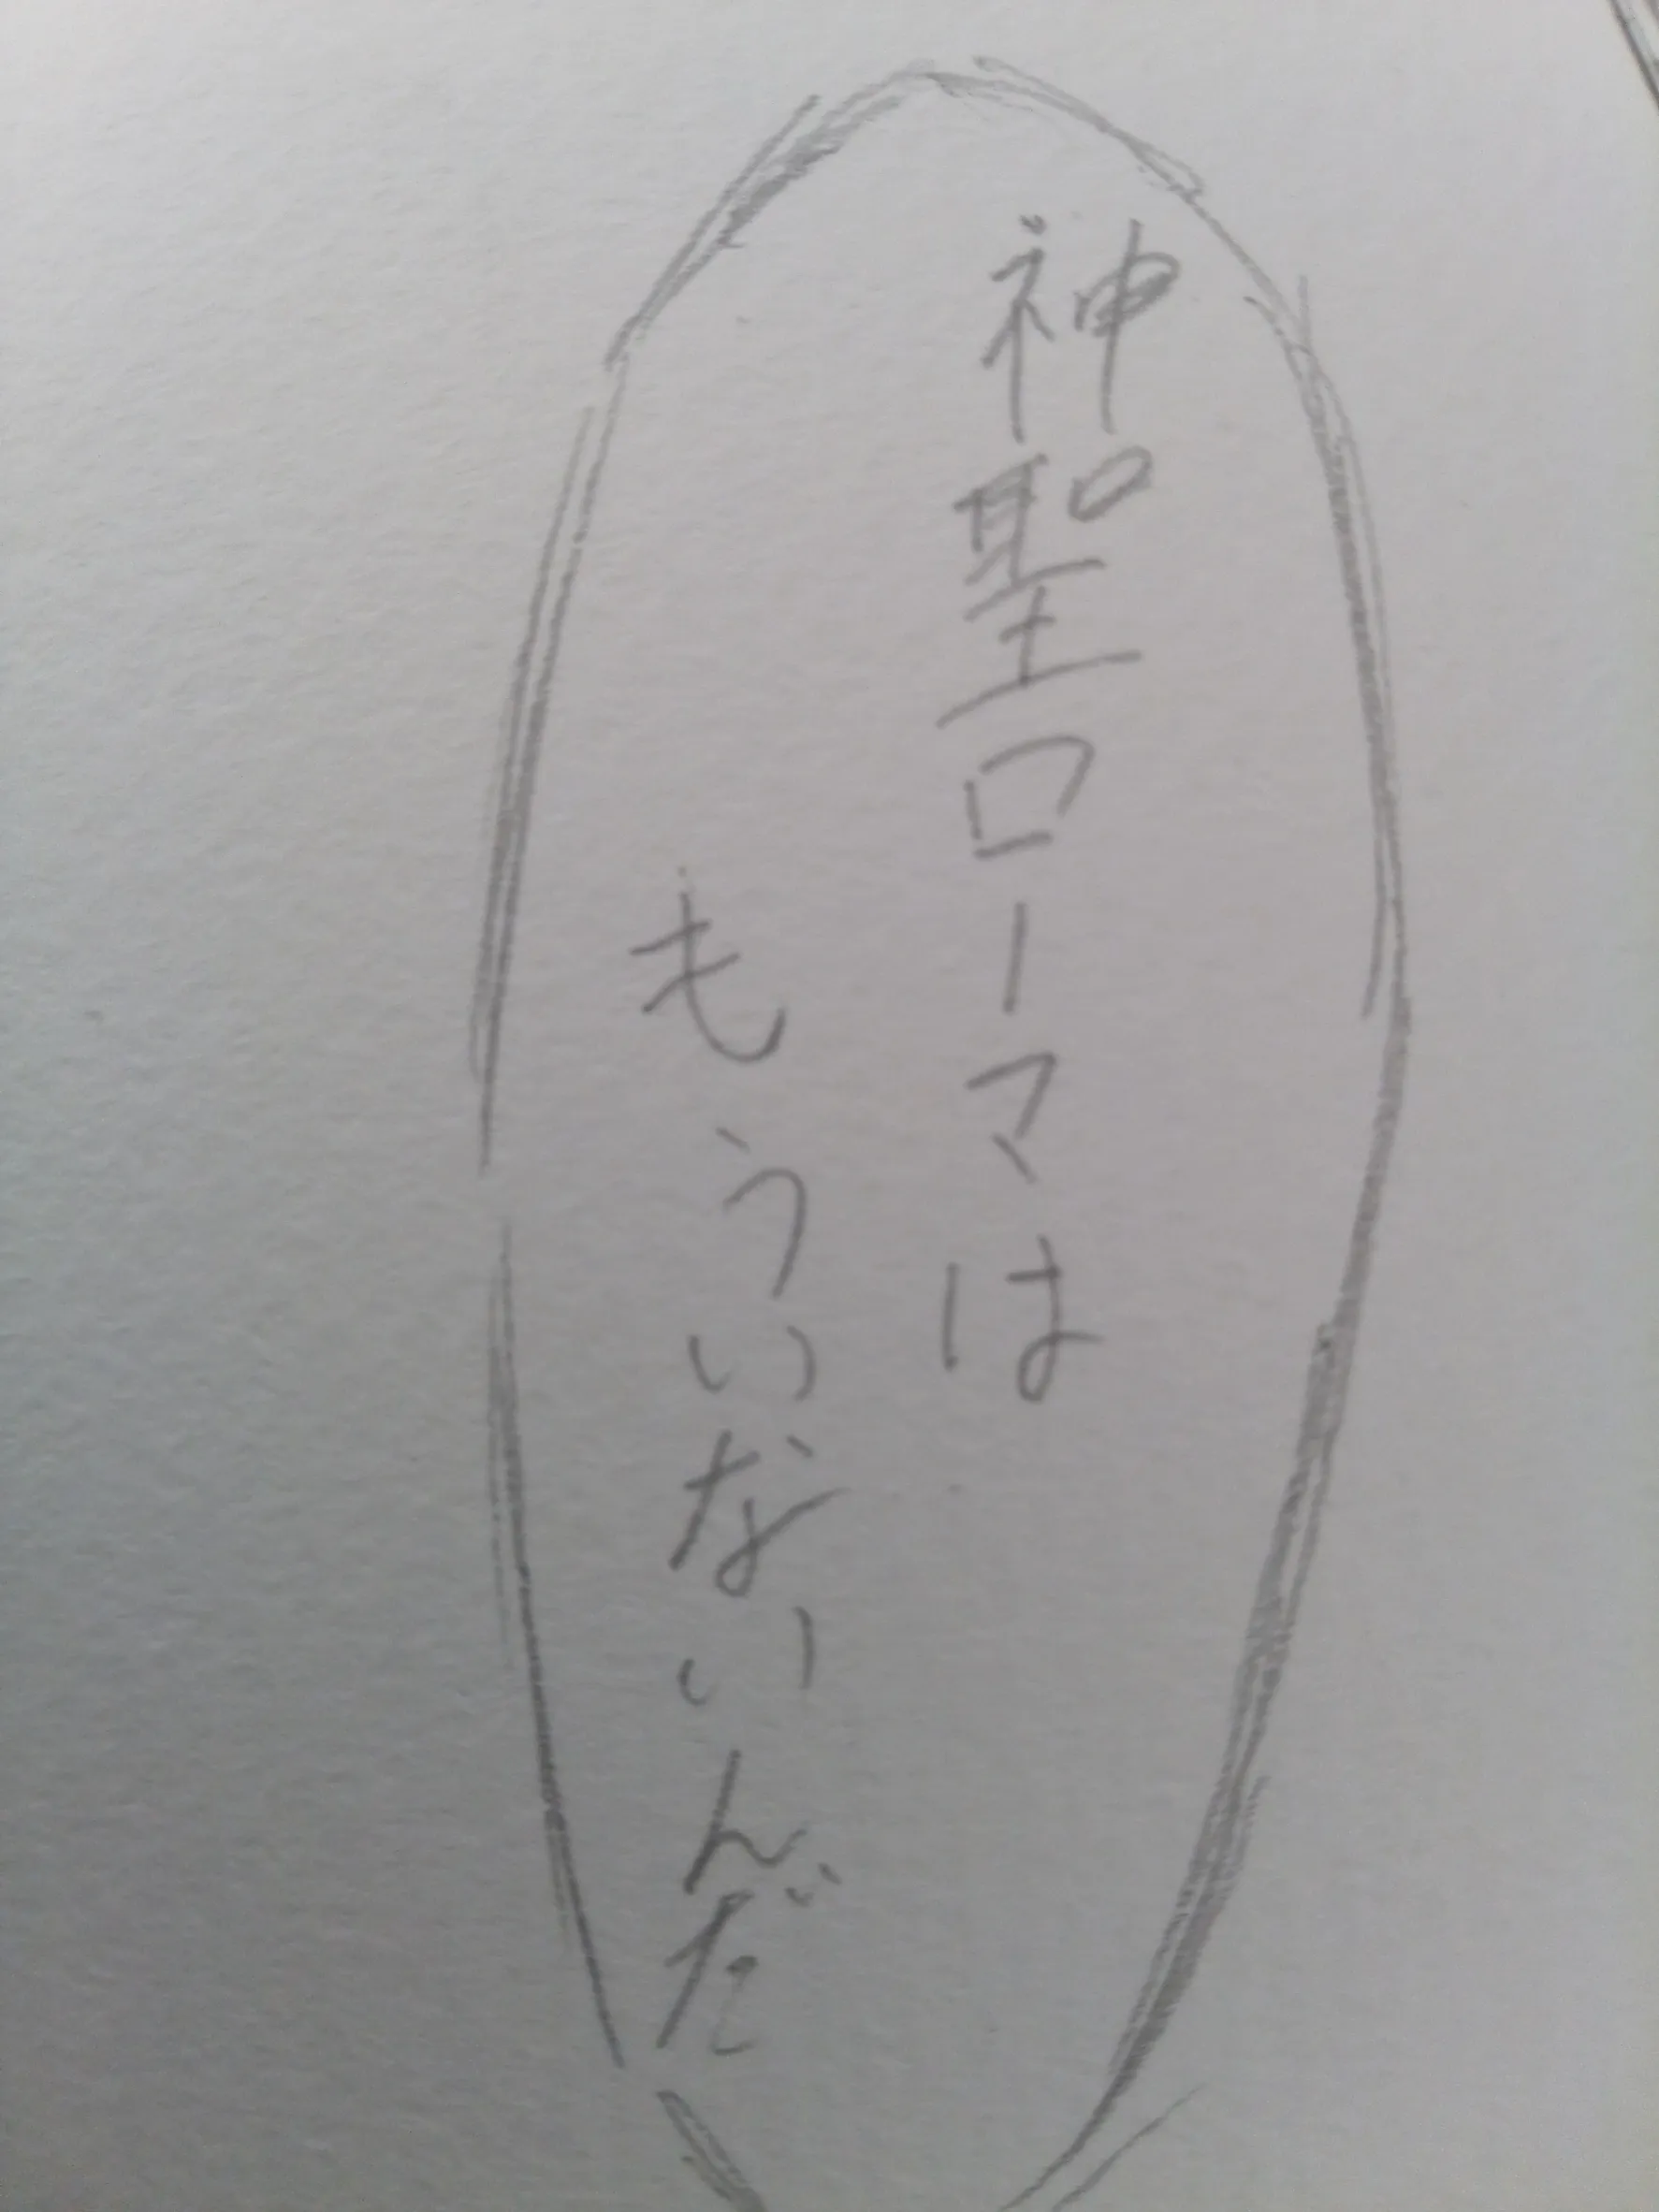 神聖ローマは
もういないんだ